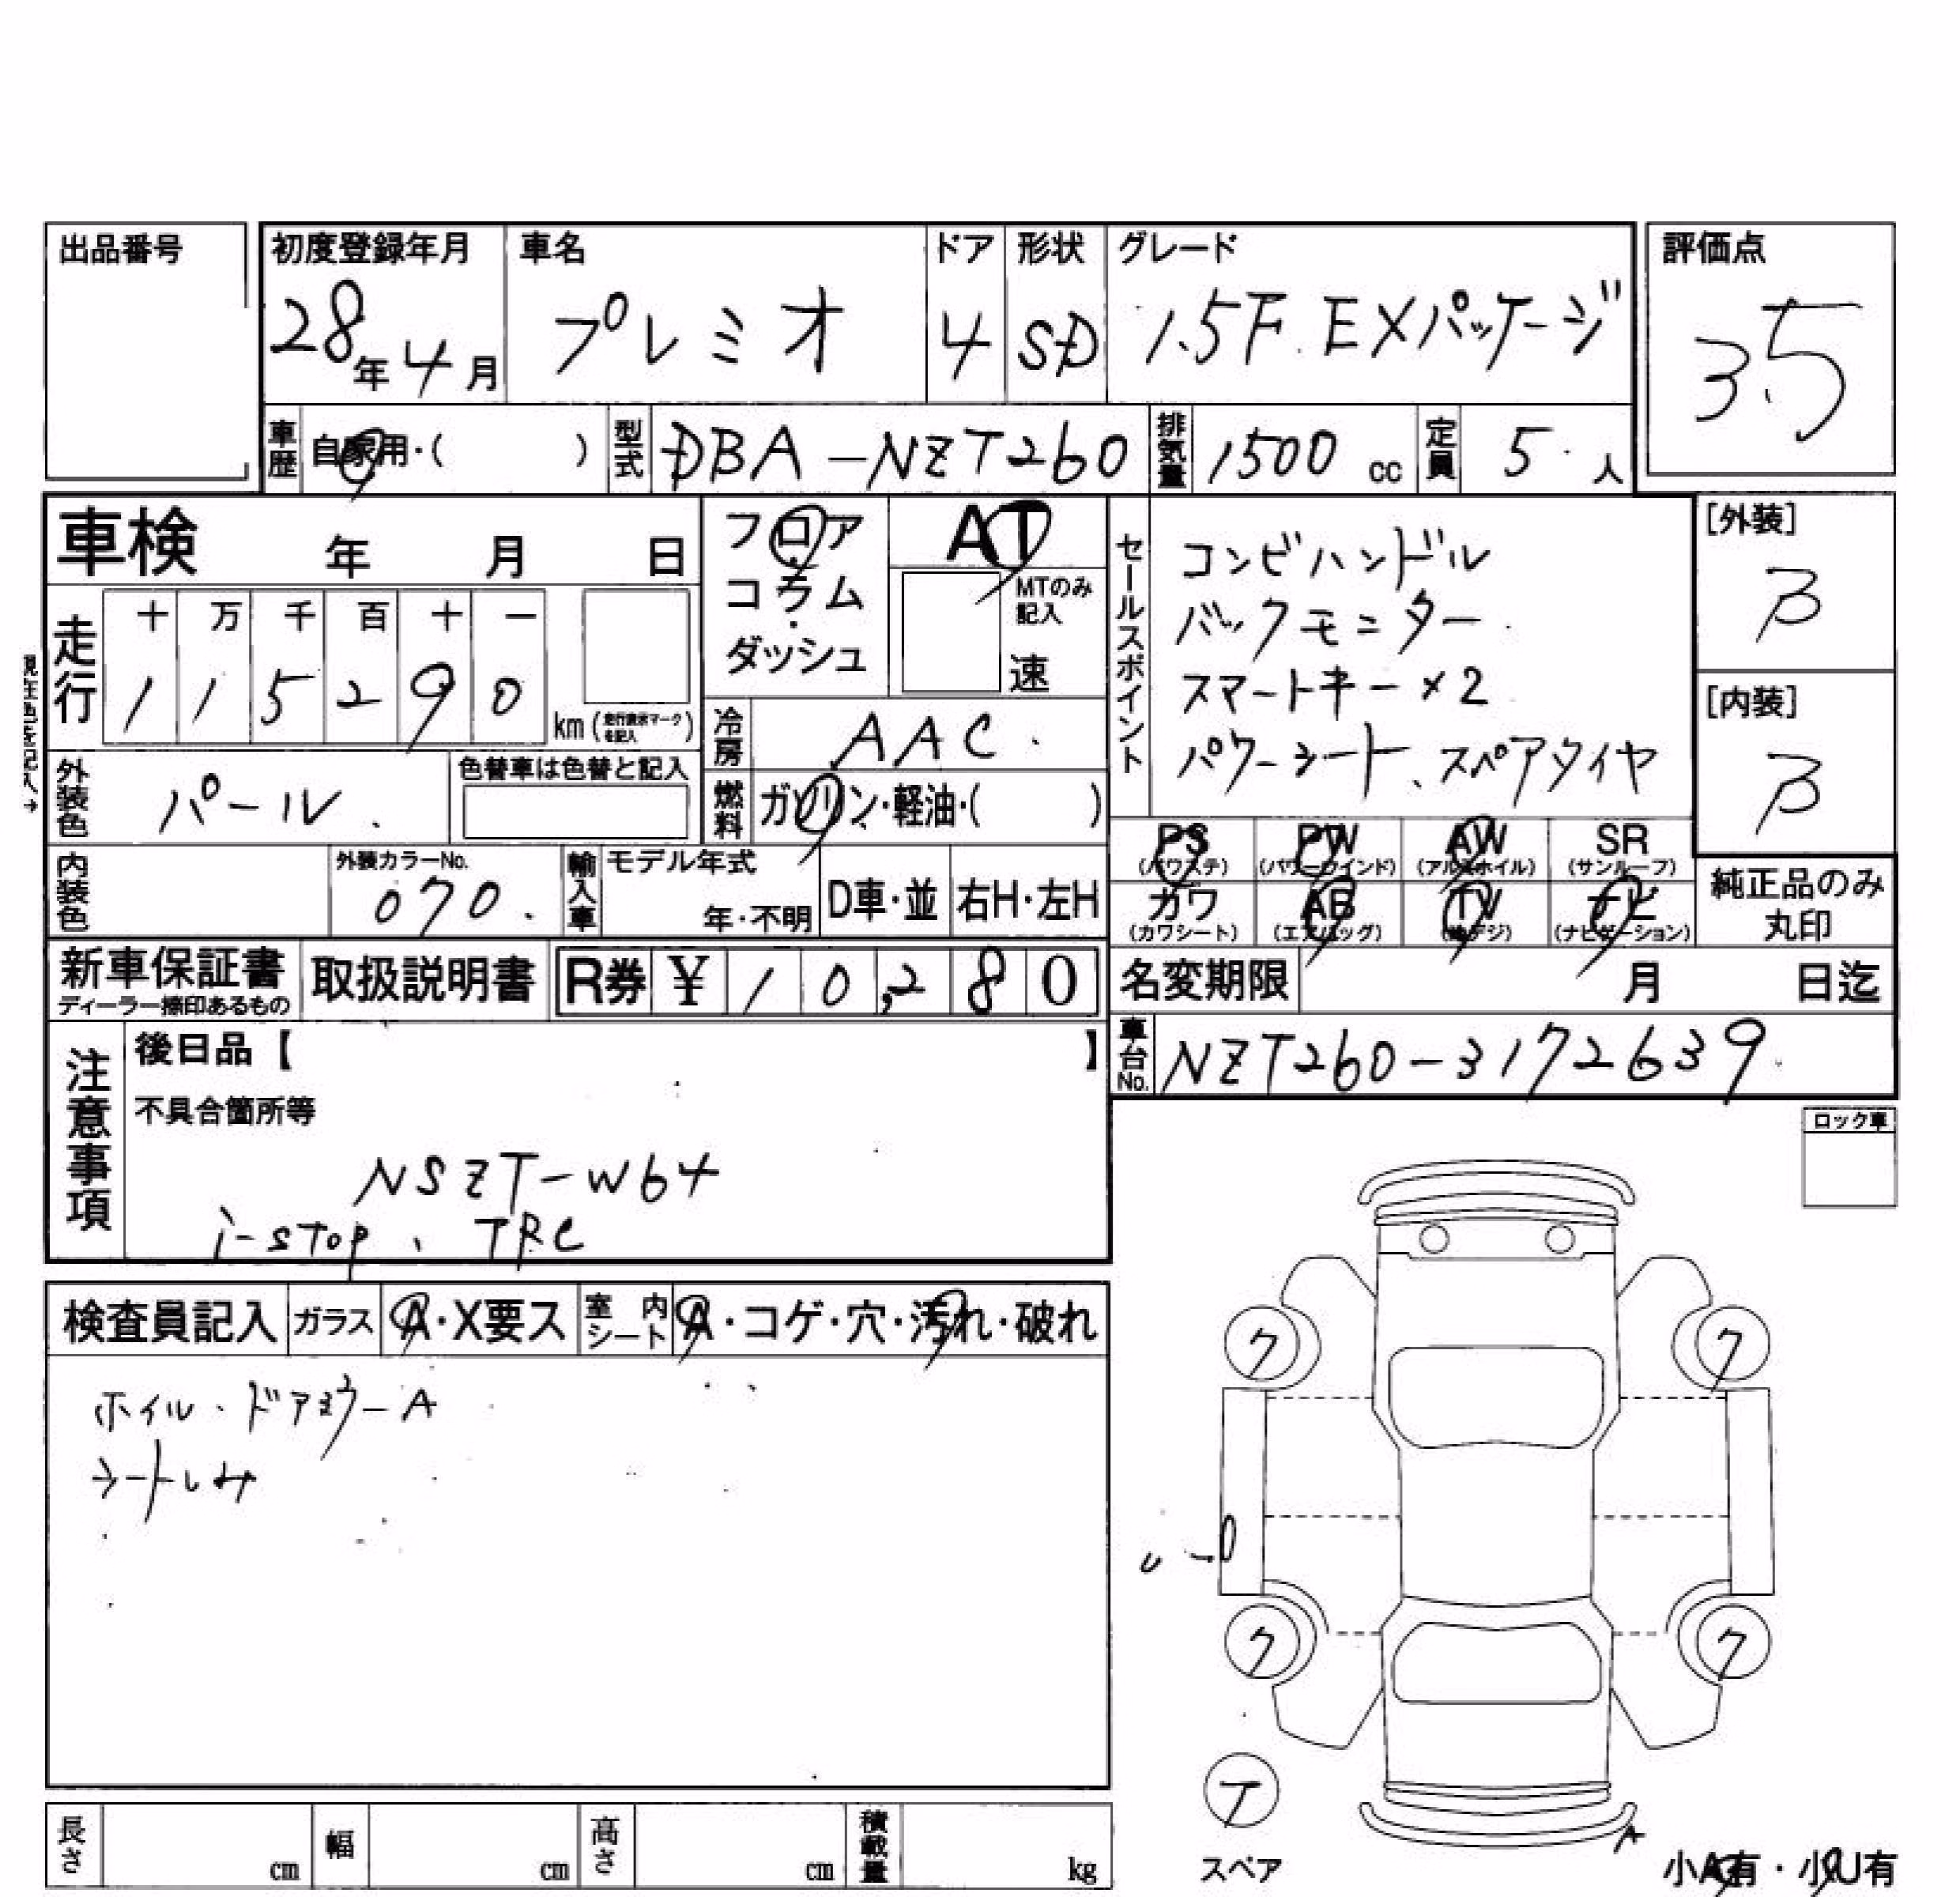 出品番号
初度登録年月 車名 ドア 形状 グレード 評価点
28年4月 プレミオ 4 SD 1.5F EXパッケージ 3.5
車歴 自家用・( ) 型式 DBA-NZT260 排気量 1500 cc 定員 5 人
車検 年 月 日
フロア
コラム
ダッシュ
AT
MTのみ記入
速
走行 十 万 千 百 十 一
1 1 5 2 9 0 km (走行表示マークを記入)
現在色を記入→
冷房 AAC
外装色 パール 色替車は色替と記入
燃料 ガソリン・軽油・( )
内装色 外装カラーNo. 070
輸入車 モデル年式 年・不明 D車・並 右H・左H
セールスポイント
コンビハンドル
バックモニター
スマートキー×2
パワーシート、スペアタイヤ
[外装]
B
[内装]
B
PS PW AW SR
(パワステ) (パワーウインド) (アルミホイル) (サンルーフ)
カワ AB TV ナビ
(カワシート) (エアバッグ) (地デジ) (ナビゲーション)
純正品のみ
丸印
新車保証書 取扱説明書 R券 ¥ 1 0,2 8 0
ディーラー捺印あるもの
名変期限 月 日迄
車台No. NZT260-3172639
注意事項
後日品【 】
不具合箇所等
NSZT-W64
i-stop、TRC
ロック車
検査員記入 ガラス A・X要ス 室内シート A・コゲ・穴・汚れ・破れ
ホイル・ドアミラーA
シートしみ
ク ク
ク ク
T
スペア
A
小A有・小U有
長さ cm 幅 cm 高さ cm 積載量 kg